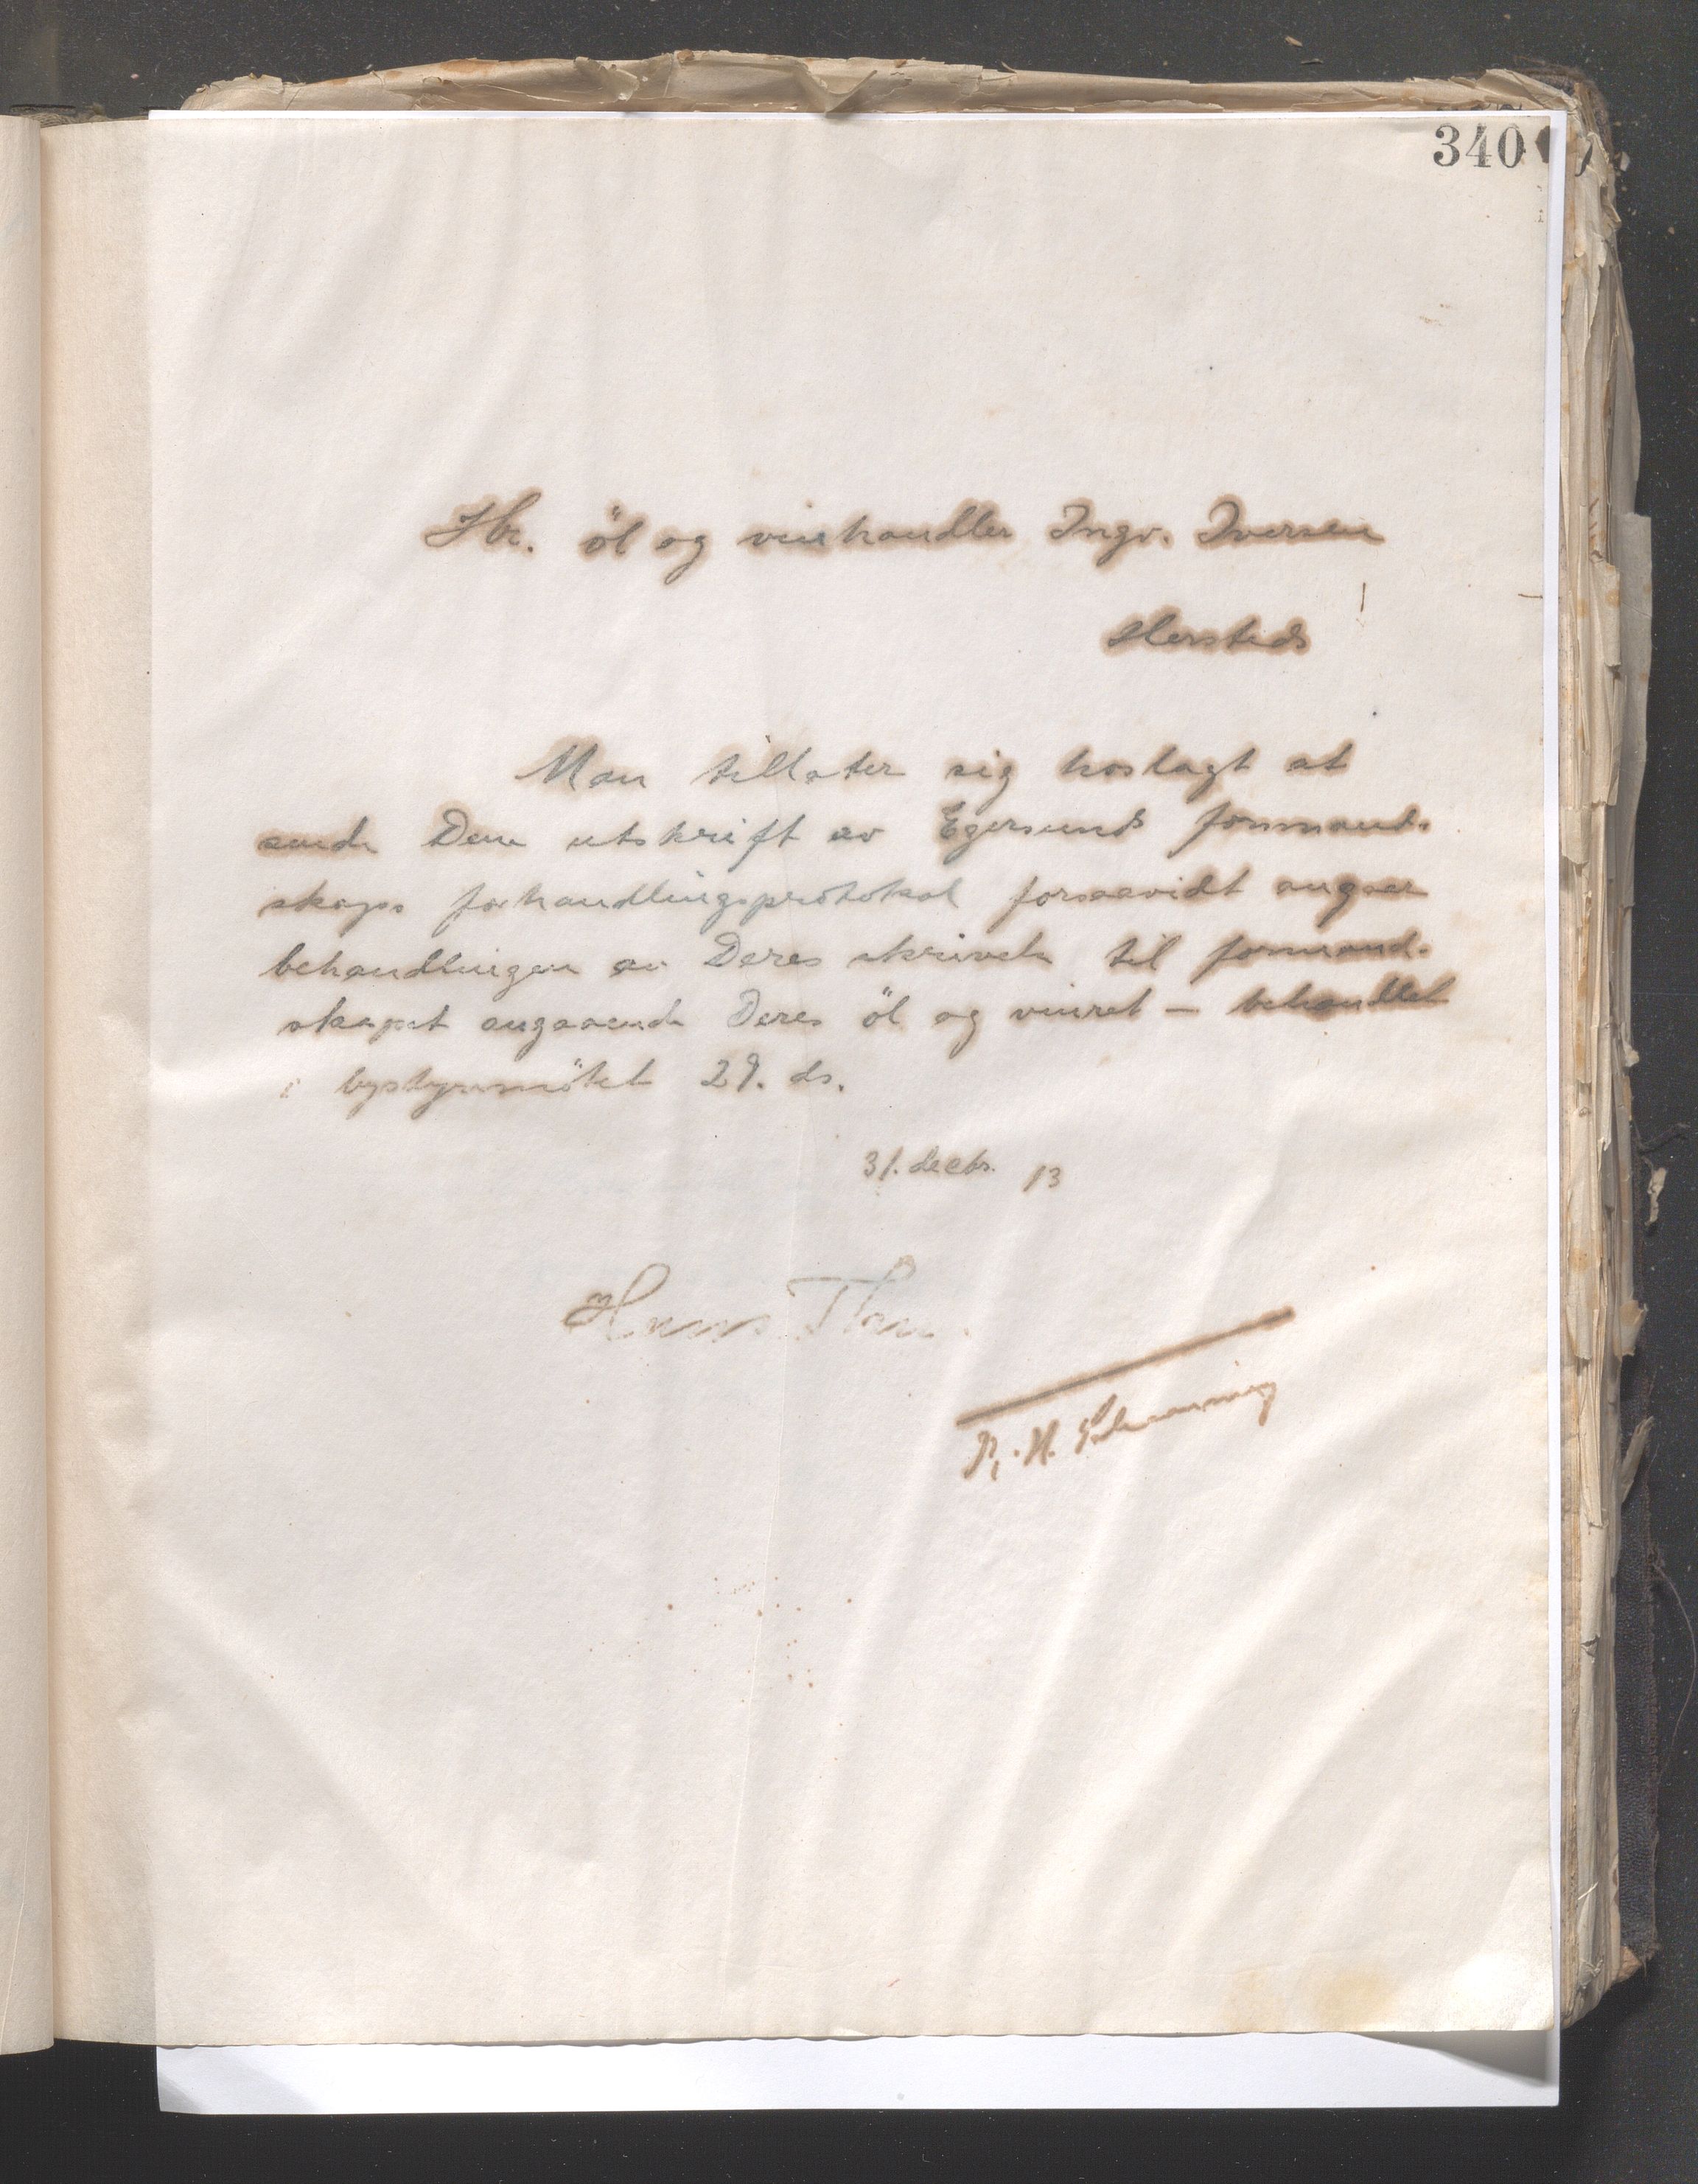 340
Hr. öl og vinhandler Ingv. Iversen
Hersteds
Man tillater sig hoslagt at
sende Dem utskrift av Egersunds formand-
skaps forhandlingsprotokol forsaavidt angaar
behandlingen av Deres skrivelse til formand-
skapet angaaende Deres öl og vinret – behandlet
i bystyremötet 29. ds.
31. decbr. 13
Hans Thu
P. H.